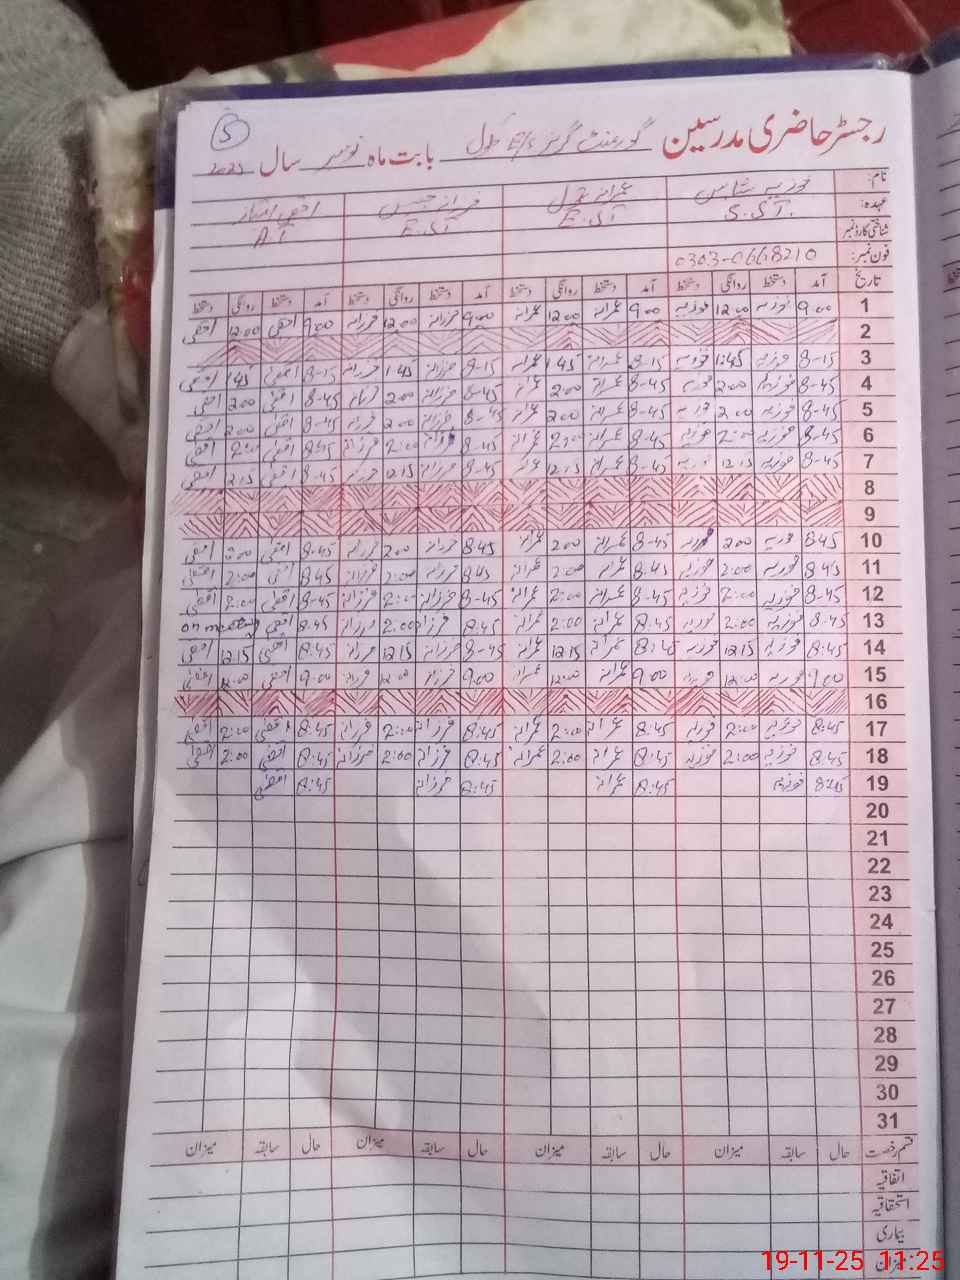 5
رجسٹر حاضری مدرسین گورنمنٹ گرلز E/S سکول بابت ماہ نومبر سال 2025
نام: فوزیہ عمرانہ فرزانہ اقصیٰ
عہدہ: S.S.T. E.S.T E.S.T A.T
شناختی کارڈ نمبر
فون نمبر: 0303-0668210
تاریخ آمد دستخط روانگی دستخط آمد دستخط روانگی دستخط آمد دستخط روانگی دستخط آمد دستخط روانگی دستخط
1 9 00 فوزیہ 12 00 فوزیہ 9 00 عمرانہ 12 00 عمرانہ 9 00 فرزانہ 12 00 فرزانہ 9 00 اقصیٰ 12 00 اقصیٰ
2
3 8-15 فوزیہ 1:45 فوزیہ 8-15 عمرانہ 1 45 عمرانہ 8-15 فرزانہ 1 45 فرزانہ 8-15 اقصیٰ 1 45 اقصیٰ
4 8-45 فوزیہ 2 00 فوزیہ 8-45 عمرانہ 2 00 عمرانہ 8-45 فرزانہ 2 00 فرزانہ 8-45 اقصیٰ 2 00 اقصیٰ
5 8-45 فوزیہ 2 00 فوزیہ 8-45 عمرانہ 2 00 عمرانہ 8-45 فرزانہ 2 00 فرزانہ 8-45 اقصیٰ 2 00 اقصیٰ
6 8-45 فوزیہ 2:00 فوزیہ 8-45 عمرانہ 2:00 عمرانہ 8-45 فرزانہ 2:00 فرزانہ 8:45 اقصیٰ 2:00 اقصیٰ
7 8-45 فوزیہ 12 15 فوزیہ 8-45 عمرانہ 12:15 عمرانہ 8-45 فرزانہ 12 15 فرزانہ 8-45 اقصیٰ 12 15 اقصیٰ
8
9
10 8 45 فوزیہ 2 00 فوزیہ 8-45 عمرانہ 2 00 عمرانہ 8 45 فرزانہ 2 00 فرزانہ 8-45 اقصیٰ 2 00 اقصیٰ
11 8 45 فوزیہ 2:00 فوزیہ 8 45 عمرانہ 2:00 عمرانہ 8 45 فرزانہ 2:00 فرزانہ 8 45 اقصیٰ 2:00 اقصیٰ
12 8-45 فوزیہ 2:00 فوزیہ 8-45 عمرانہ 2:00 عمرانہ 8-45 فرزانہ 2:00 فرزانہ 8-45 اقصیٰ 2:00 اقصیٰ
13 8-45 فوزیہ 2:00 فوزیہ 8:45 عمرانہ 2:00 عمرانہ 8:45 فرزانہ 2:00 فرزانہ 8:45 اقصیٰ on meeting
14 8:45 فوزیہ 12 15 فوزیہ 8:45 عمرانہ 12 15 عمرانہ 8-45 فرزانہ 12 15 فرزانہ 8:45 اقصیٰ 12 15 اقصیٰ
15 9 00 فوزیہ 12:00 فوزیہ 9 00 عمرانہ 12:00 عمرانہ 9 00 فرزانہ 12:00 فرزانہ 9:00 اقصیٰ 12:00 اقصیٰ
16
17 8:45 فوزیہ 2:00 فوزیہ 8:45 عمرانہ 2:00 عمرانہ 8:45 فرزانہ 2:00 فرزانہ 8:45 اقصیٰ 2:00 اقصیٰ
18 8:45 فوزیہ 2:00 فوزیہ 8:45 عمرانہ 2:00 عمرانہ 8:45 فرزانہ 2:00 فرزانہ 8:45 اقصیٰ 2:00 اقصیٰ
19 8:45 فوزیہ 8:45 عمرانہ 8:45 فرزانہ 8:45 اقصیٰ
20
21
22
23
24
25
26
27
28
29
30
31
قسم رخصت حال سابقہ میزان حال سابقہ میزان حال سابقہ میزان حال سابقہ میزان
اتفاقیہ
استحقاقیہ
بیماری
میزان
19-11-25 11:25